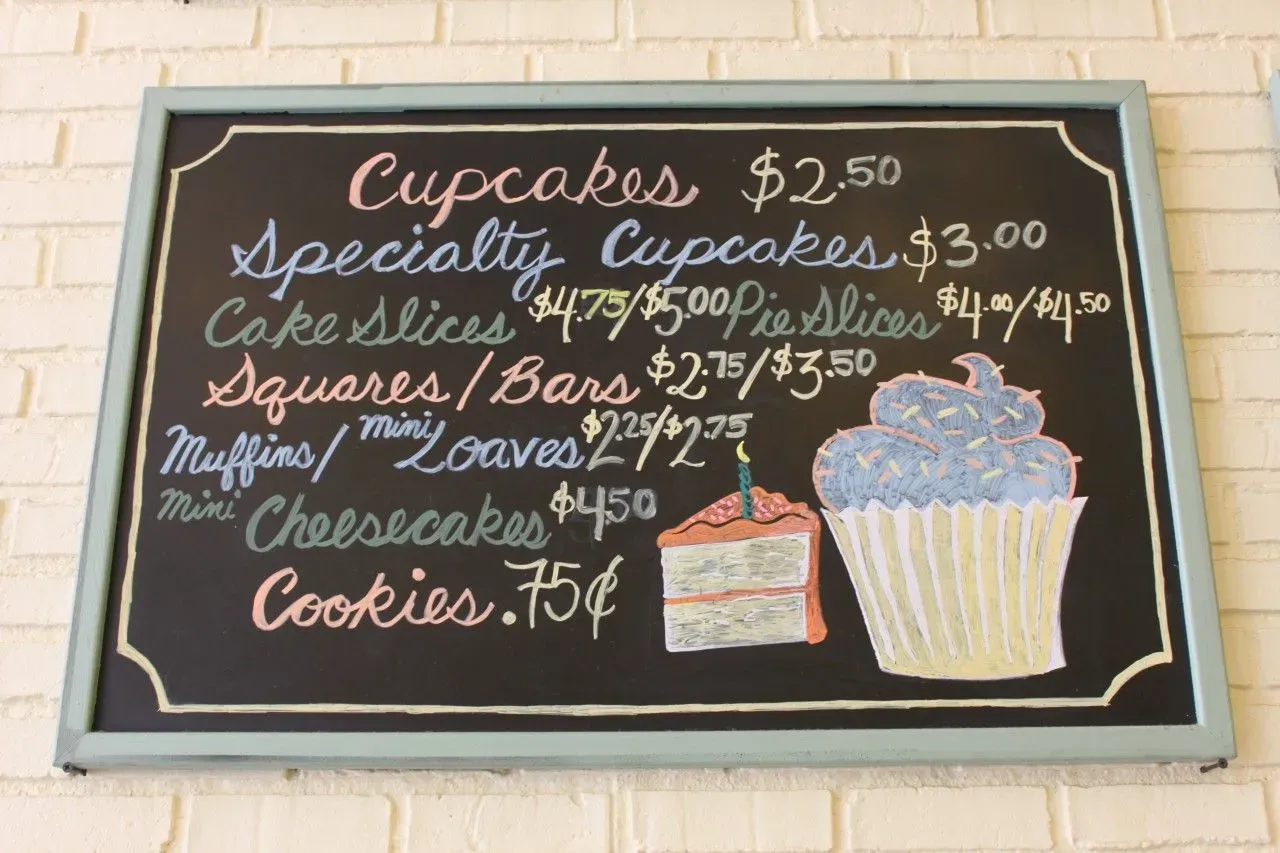 Cupcakes $2.50
Specialty Cupcakes $3.00
Cake Slices $4.75/$5.00 Pie Slices $4.00/$4.50
Squares/Bars $2.75/$3.50
Muffins/ mini Loaves $2.25/$2.75
Mini Cheesecakes $4.50
Cookies .75¢